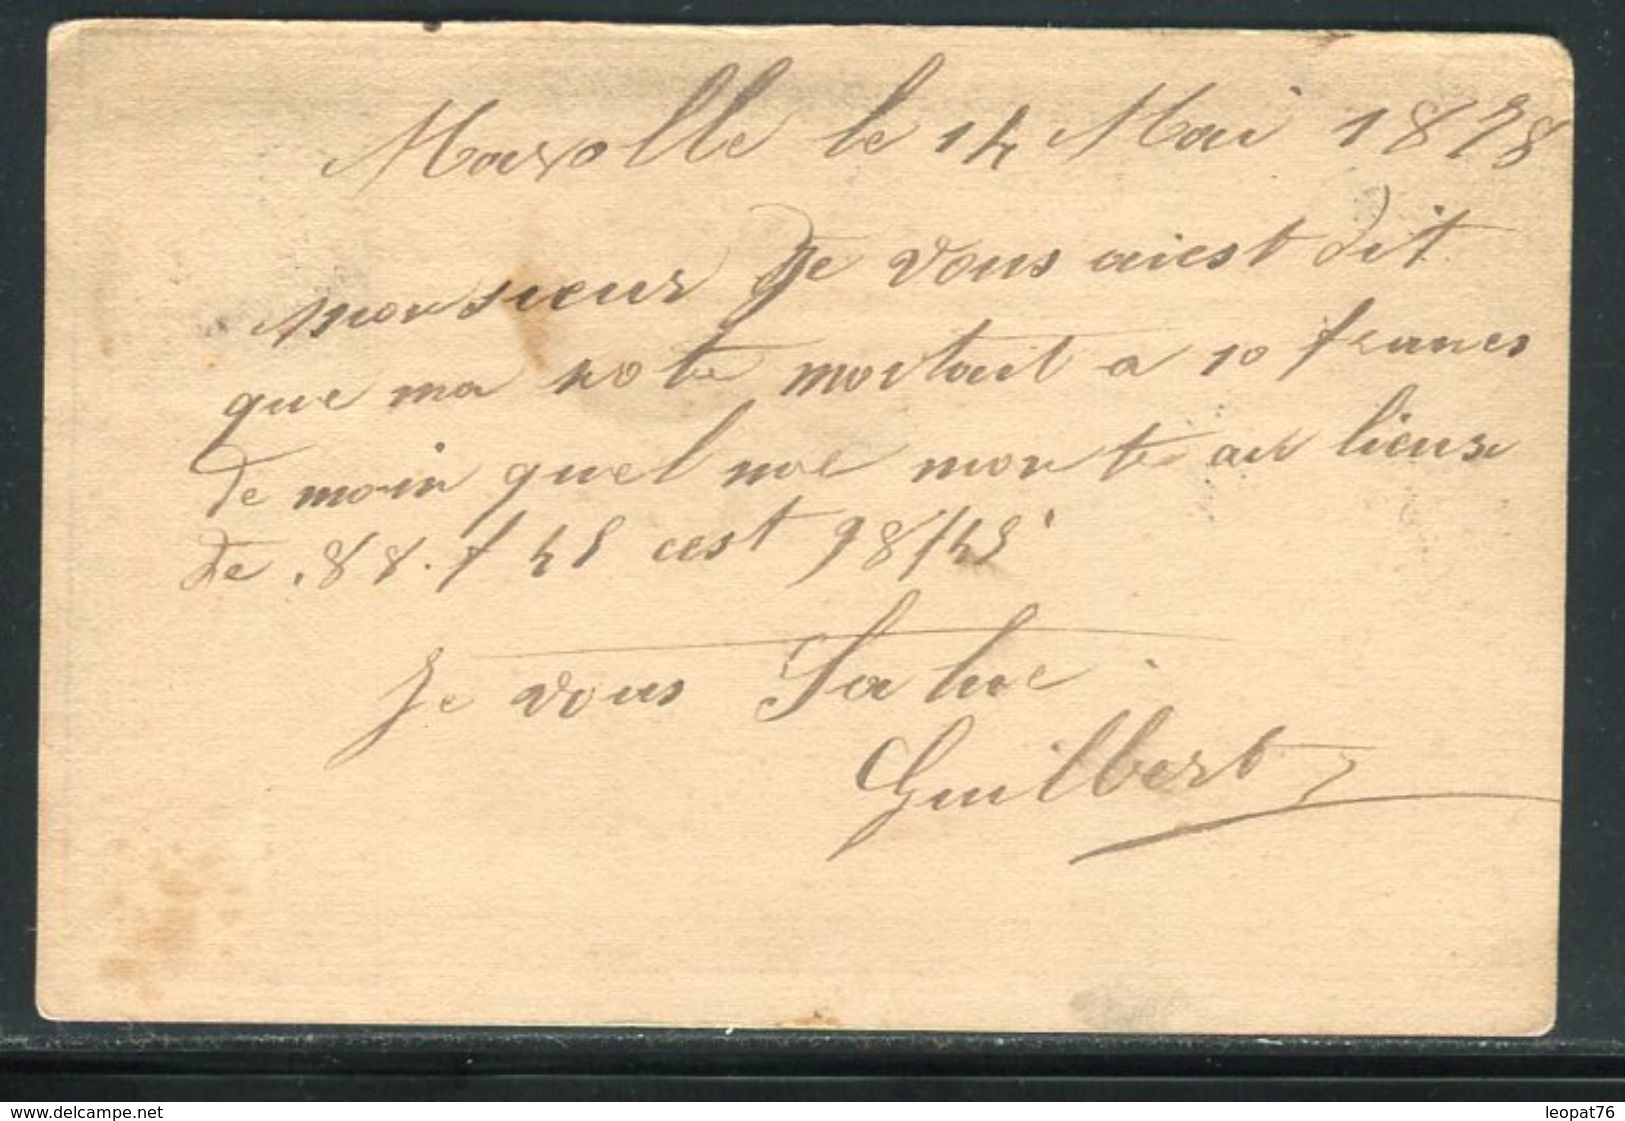 Marolle le 14 Mai 1878
Monsieur Je vous aiest dit
que ma note montait a 10 francs
de moin quel noe monte au lieux
de .88.f 45 cest 98f45
Je vous Salue
Guilbert
www.delcampe.net
leopat76